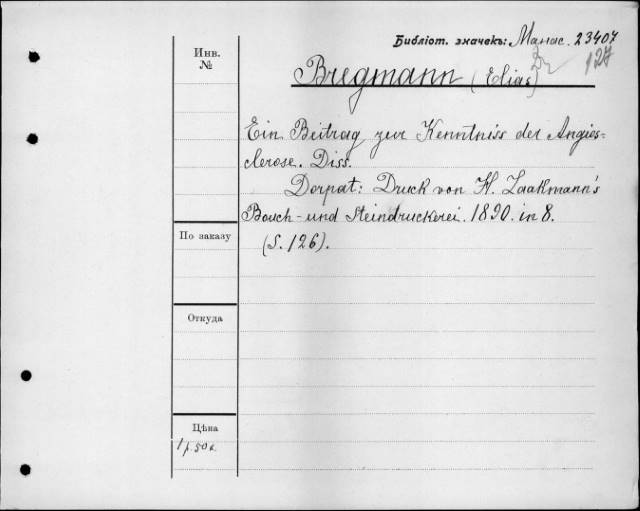 Библіот. значекъ: Манас. 23407
127
Инв.
№
Bregmann (Elias)
Ein Beitrag zur Kenntniss der Angios=
clerose. Diss.
Dorpat: Druck von H. Laakmann's
Bouch- und Steindruckerei. 1890. in 8.
(S. 126).
По заказу
Откуда
Цѣна
1 р. 50 к.